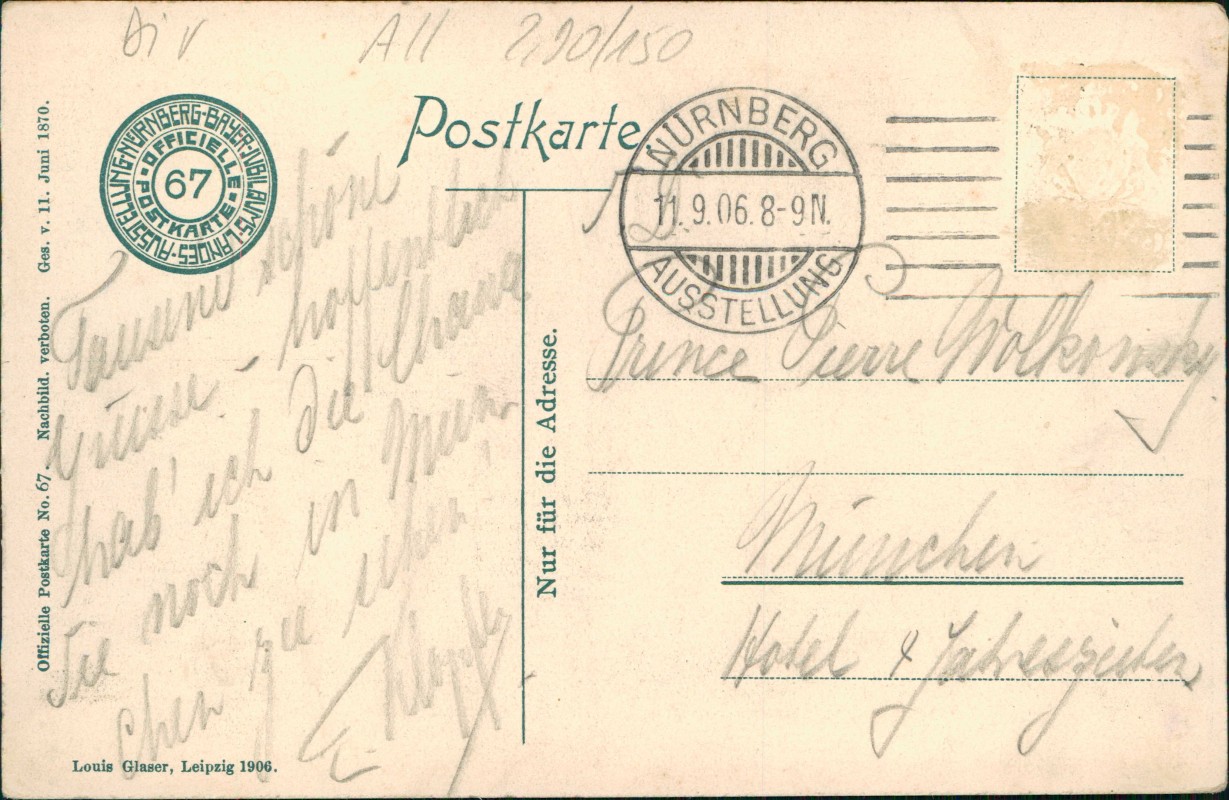 Div All 2,90/150
Postkarte
BAYER·JUBILÄUMS·LANDES·AUSSTELLUNG·NÜRNBERG
OFFICIELLE POSTKARTE
67
NÜRNBERG
11.9.06.8-9N.
AUSSTELLUNG
Offizielle Postkarte No. 67. Nachbild. verboten. Ges. v. 11. Juni 1870.
Tausend schöne
Grüsse - hoffentlich
hab' ich die
Sie noch in Mün-
chen zu sehen
E.
Nur für die Adresse.
Prince Pierre Wolkonsky
München
Hotel 4 Jahreszeiten
Louis Glaser, Leipzig 1906.